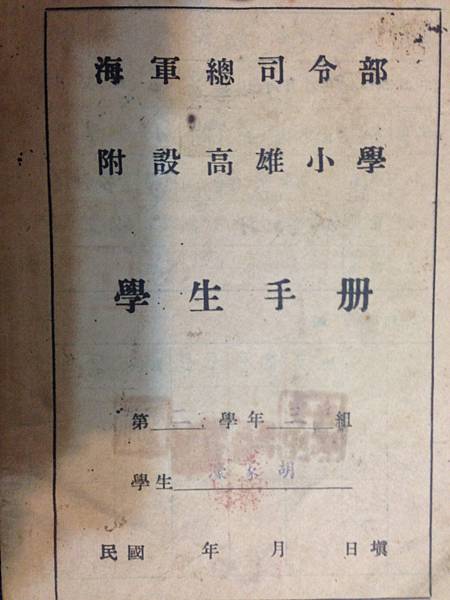 海軍總司令部
附設高雄小學
學生手册
第二學年三組
學生 家胡
民國 年 月 日填